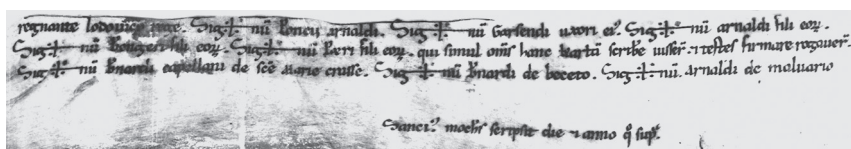 regnante lodovico rege. Sig‡nũ poncii arnaldi. Sig‡nũ Garsendi uxori ei⁹. Sig‡nũ arnaldi fili eoꝝ.
Sig‡nũ fili eoꝝ. Sig‡nũ petri fili eoꝝ. qui simul om̃s hanc kartã scribe iusser̃. ⁊ testes firmare rogauer̃.
Sig‡nũ b̃nardi capellani de sc̃e marie crasse. Sig‡nũ b̃nardi de beceto. Sig‡nũ. arnaldi de maluario
Sanci⁹ moch̃s scripsit die ⁊ anno q̊ sup̃.